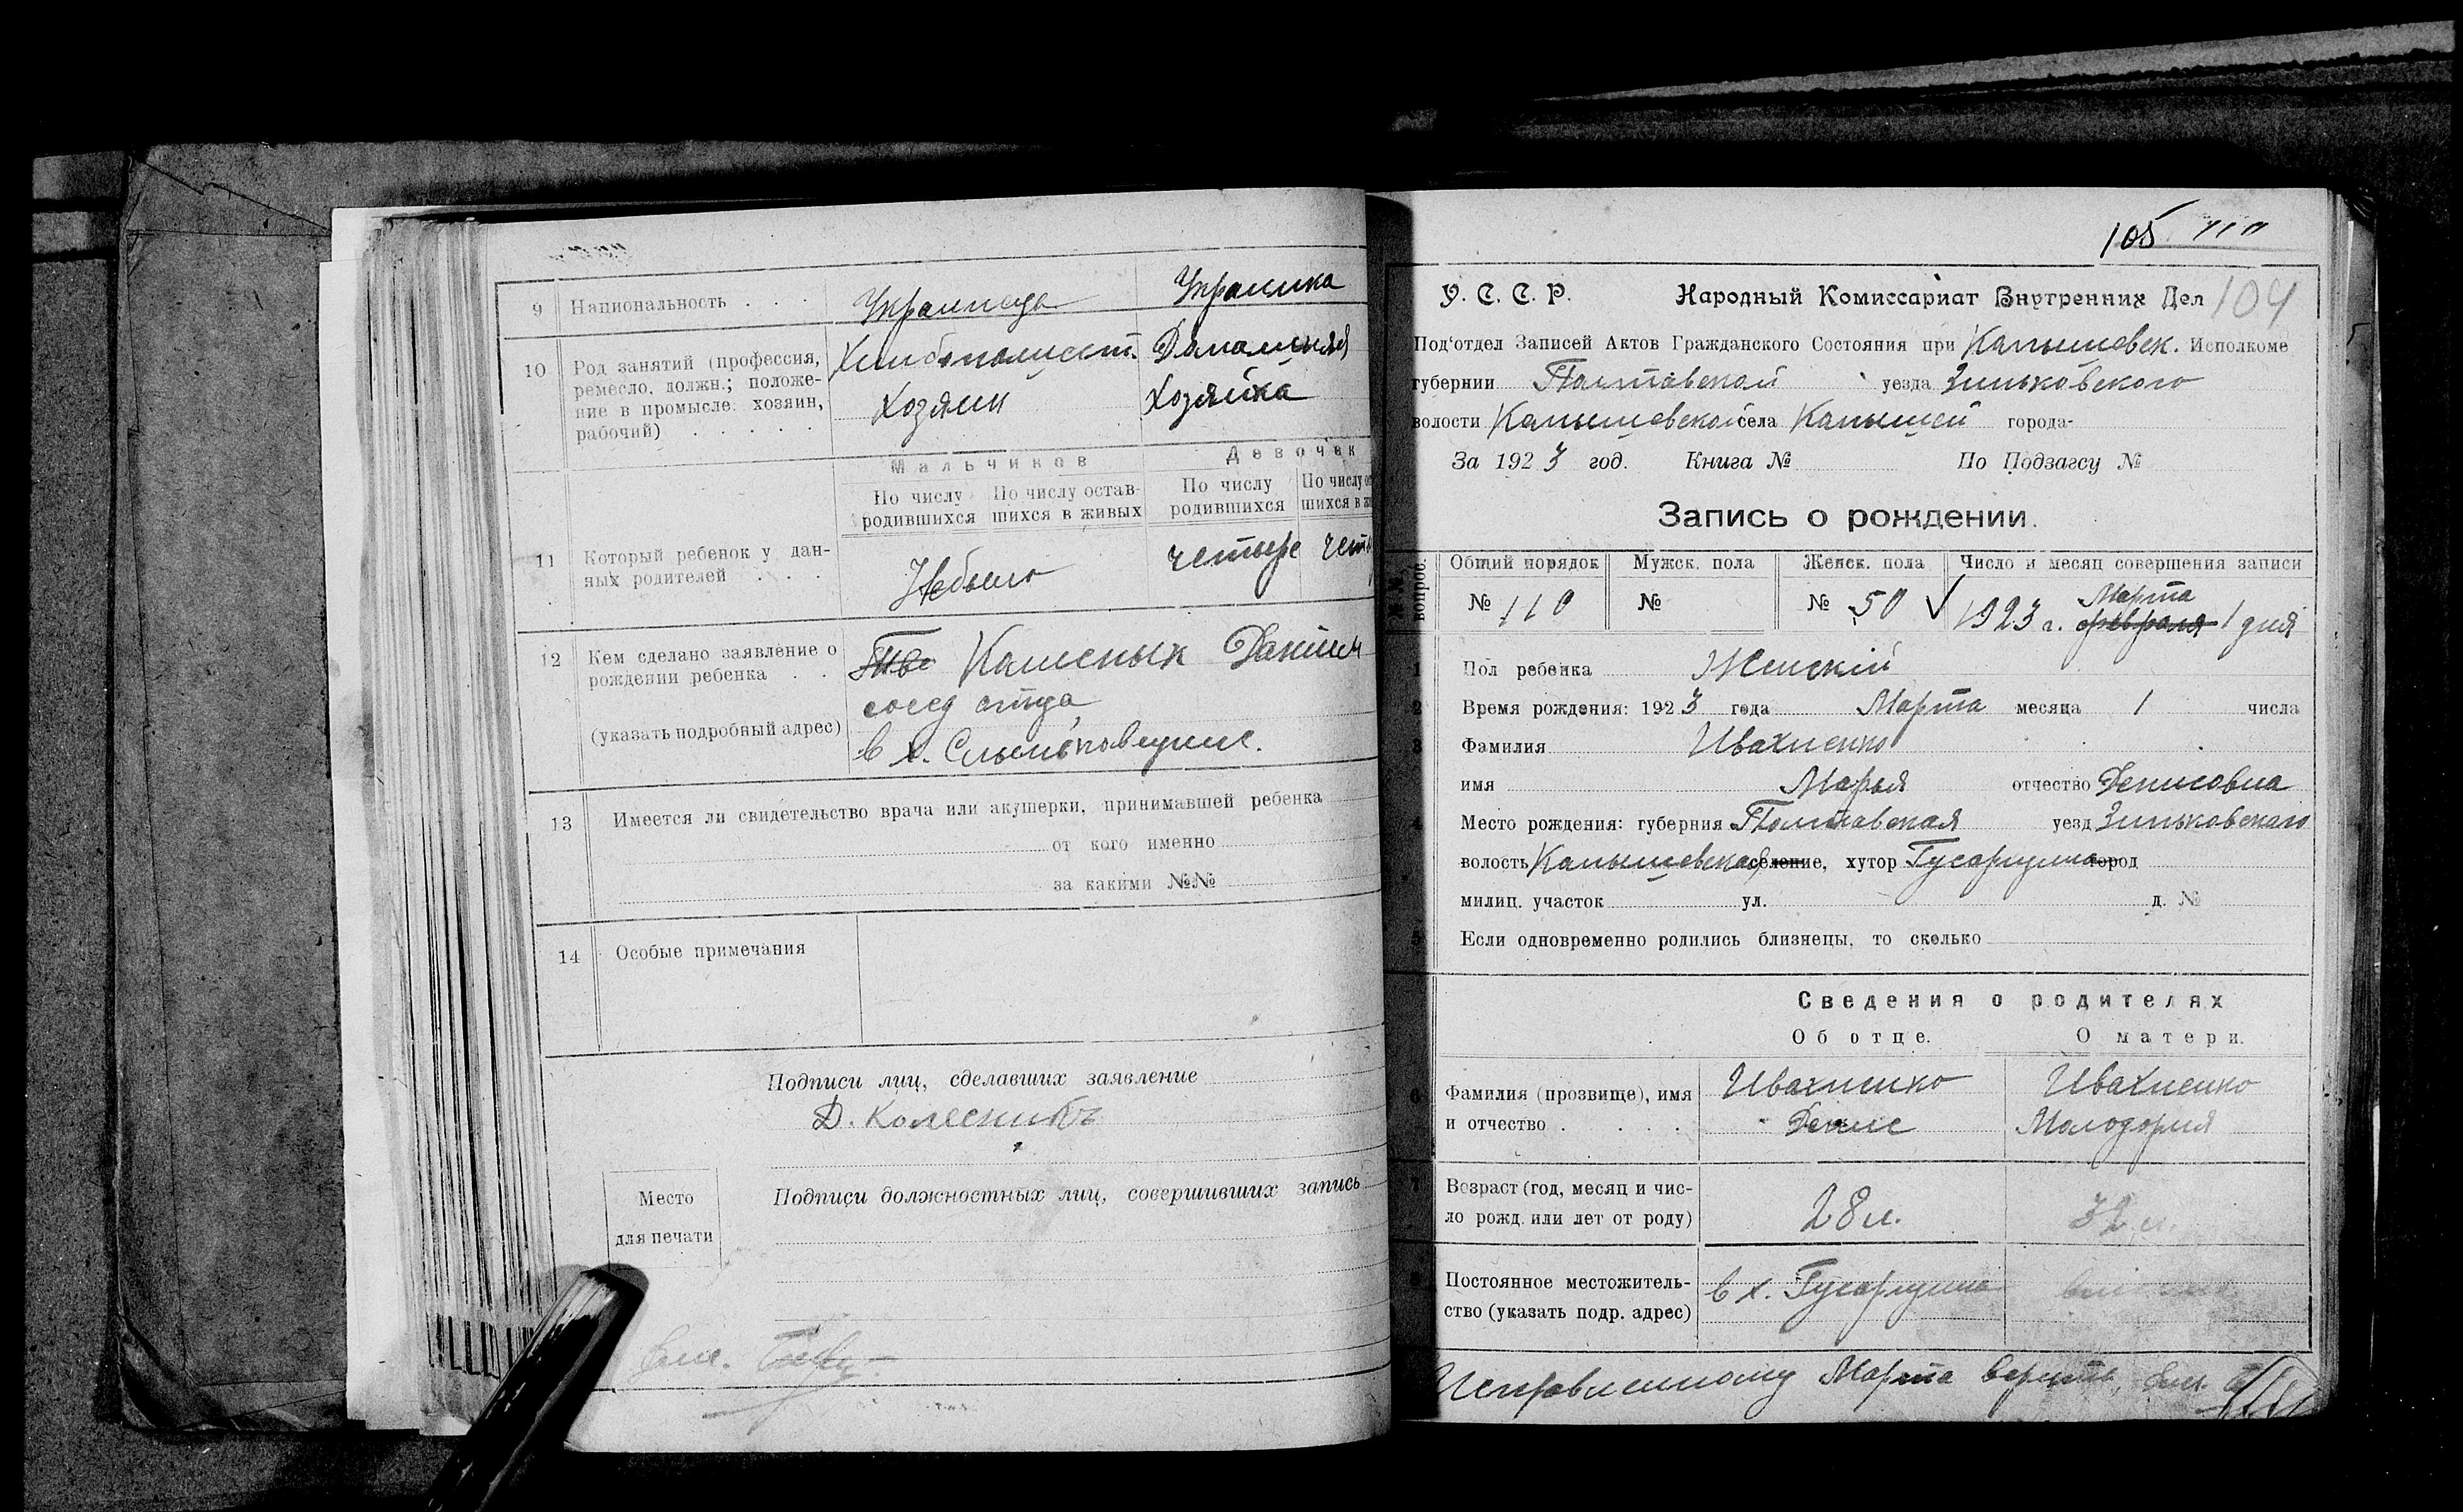 9 Национальность . . . Украинец Украинка
10 Род занятий (профессия, Домашняя
ремесло, должн.; положе- Хозяин Хозяйка
ние в промысле: хозяин,
рабочий) . . . . .
Мальчиков Девочек
По числу По числу остав- По числу По числу
родившихся шихся в живых родившихся шихся в
11 Который ребенок у дан- Небыло четыре
ных родителей . . .
12 Кем сделано заявление о Колеснык Данiил
рождении ребенка . .
сосед отца
(указать подробный адрес) в х.
13 Имеется ли свидетельство врача или акушерки, принимавшей ребенка
от кого именно
за какими №№
14 Особые примечания
Подписи лиц, сделавших заявление
Д. Колесникъ
Место Подписи должностных лиц, совершивших запись
для печати
105 110
У. С. С. Р. Народный Комиссариат Внутренних Дел 104
Под'отдел Записей Актов Гражданского Состояния при Капышевск. Исполкоме
губернии Полтавской уезда Зиньковского
волости Капышевской села Капышей города-
За 1923 год. Книга № По Подзагсу №
Запись о рождении.
№№ вопрос.
Общий порядок Мужск. пола Женск. пола Число и месяц совершения записи
Марта
№ 110 № № 50 √ 1923 г. февраля 1 дня
1 Пол ребенка Женскiй
2 Время рождения: 1923 года Марта месяца 1 числа
3 Фамилия Ивахненко
имя Марья отчество Денисовна
4 Место рождения: губерния Полтавская уезд Зиньковского
волость Капышевская селение, хутор Гусарщина город
милиц. участок ул. д. №
5 Если одновременно родились близнецы, то сколько
Сведения о родителях
Об отце. О матери.
6 Фамилия (прозвище), имя Ивахненко Ивахненко
и отчество . . . . Денис
7 Возраст (год, месяц и чис-
ло рожд. или лет от роду) 28 л. 32 л.
8 Постоянное местожитель- в х. Гусарщина
ство (указать подр. адрес)
Исправленному Марта верить